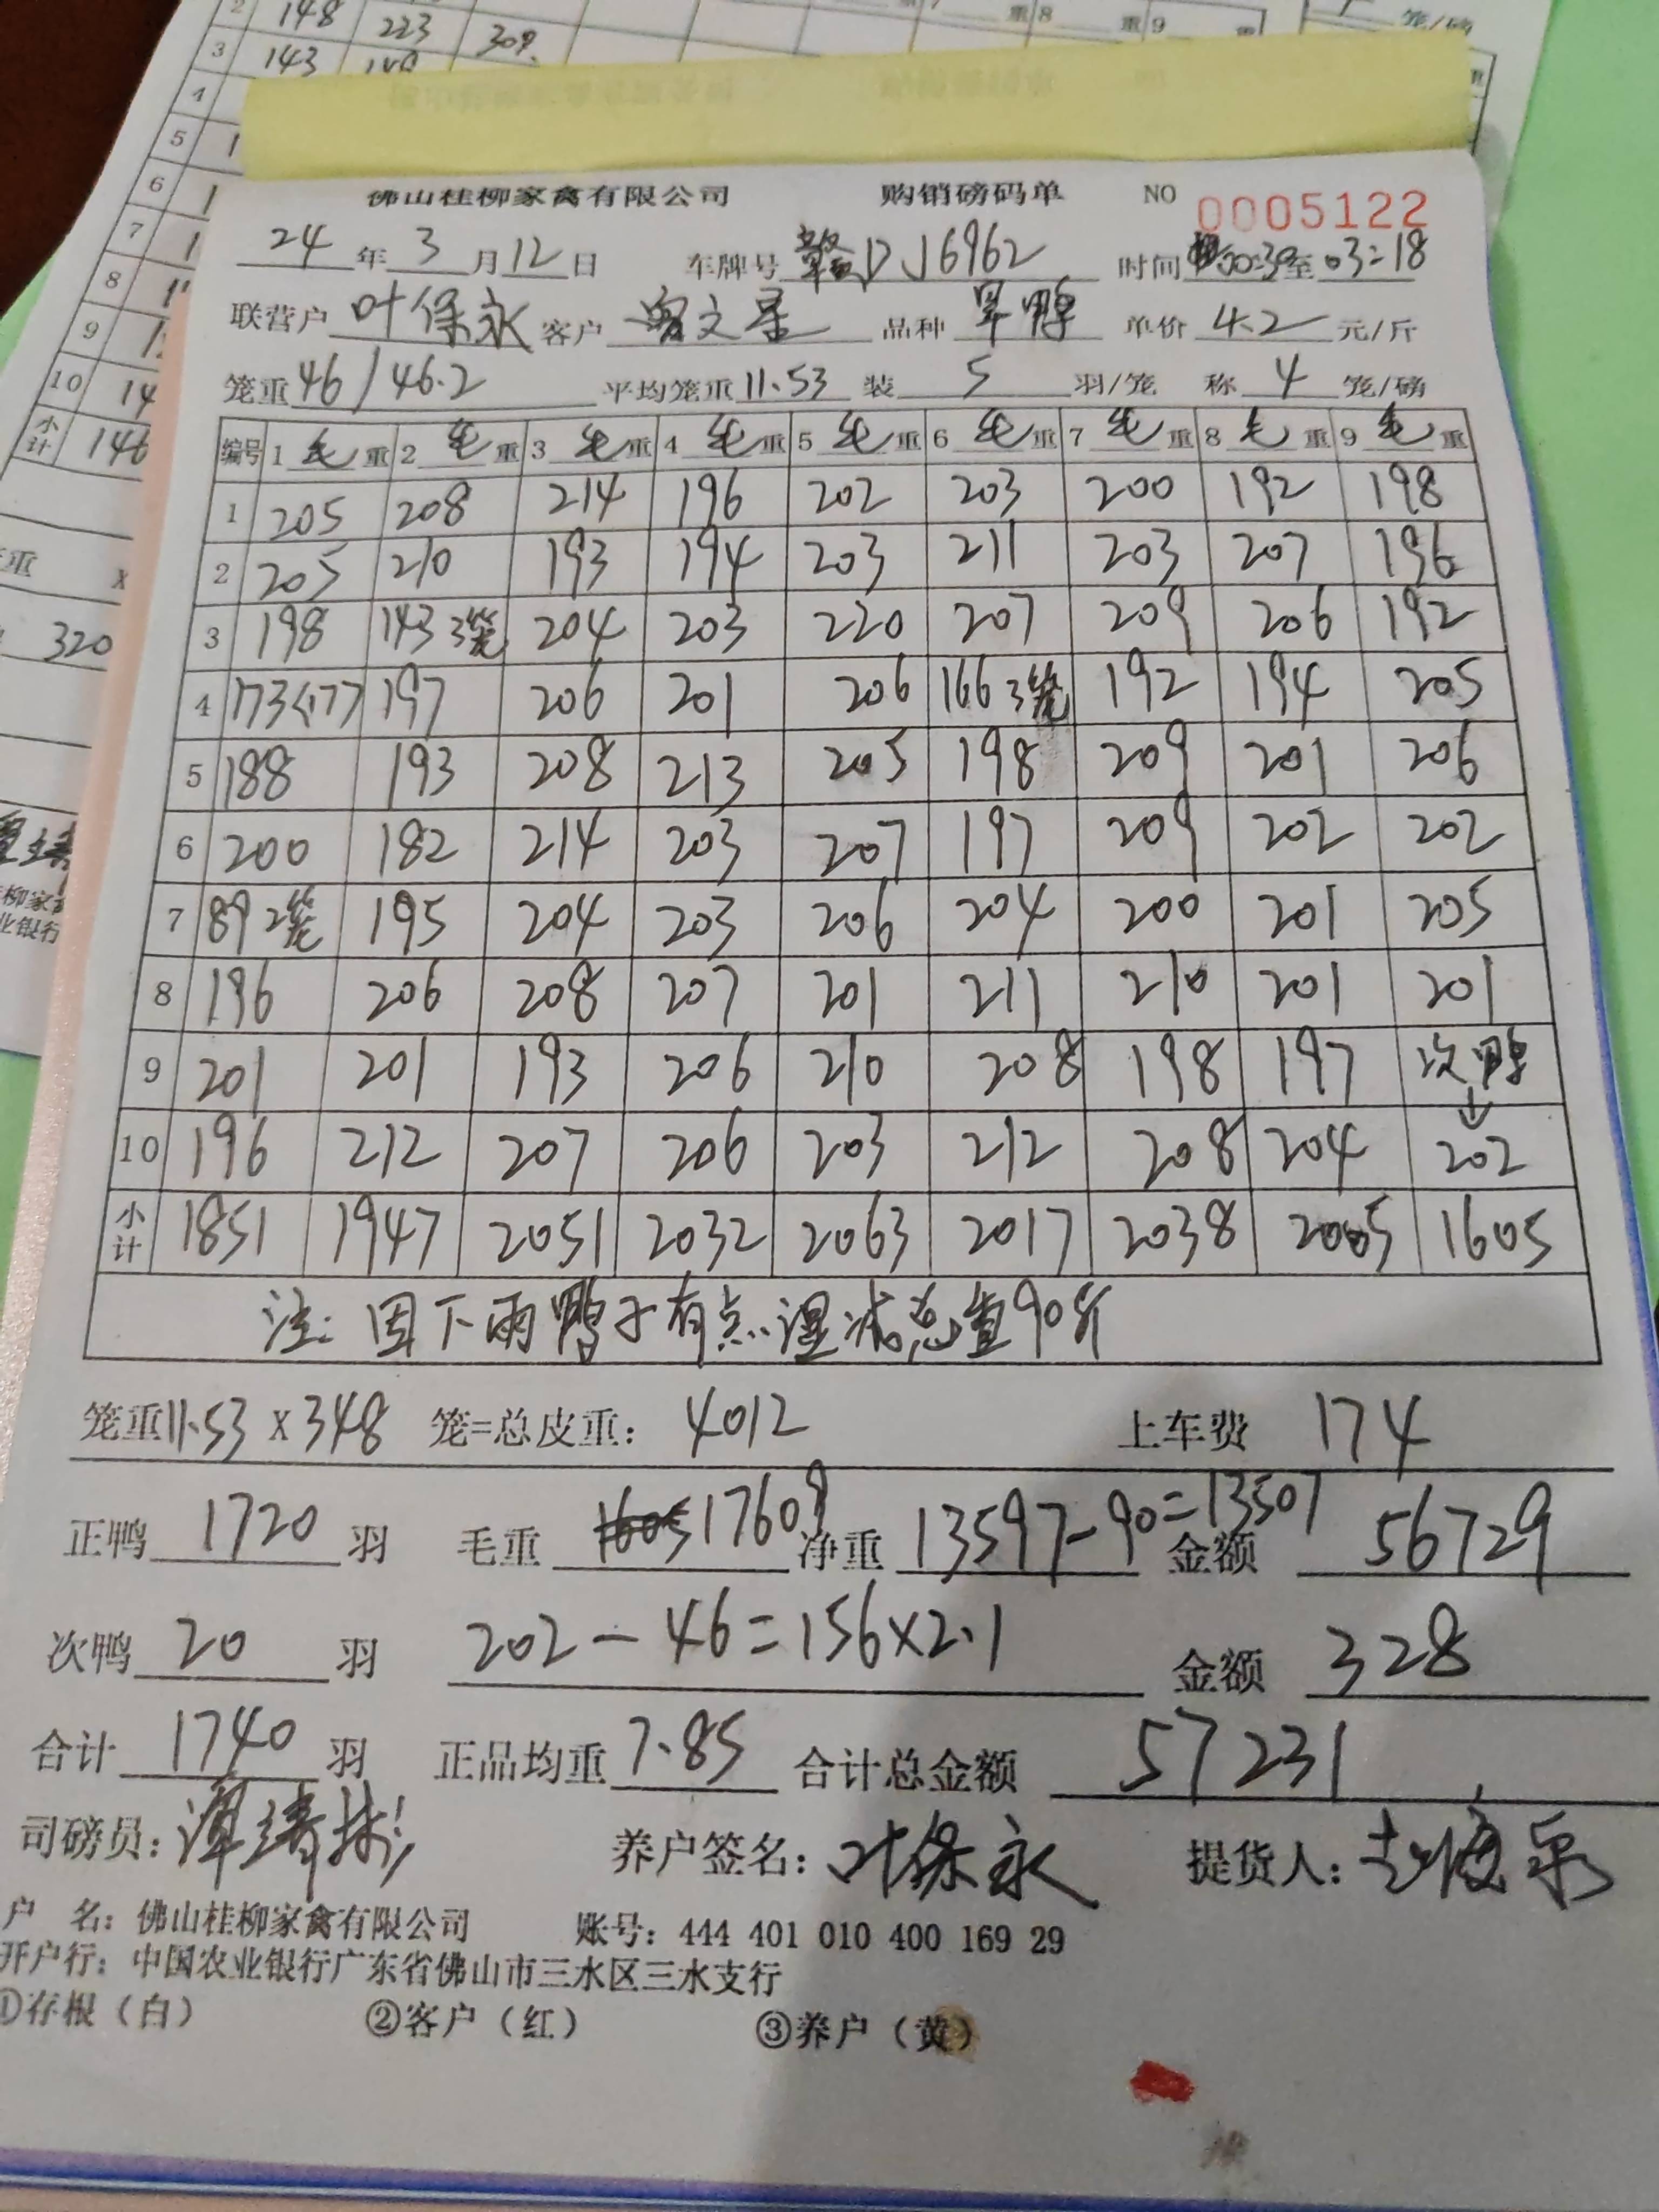 2 148 223 309 重8 重9 笼/磅
3 143
4
5
6
7
8
9
10 14
小计 146
320
佛山桂柳家禽有限公司 购销磅码单 NO 0005122
24年3月12日 车牌号 赣DJ6962 时间 00:30至03:18
联营户 叶保永 客户 文星 品种 旱鸭 单价 4.2 元/斤
笼重 46/46.2 平均笼重 11.53 装 5 羽/笼 称 4 笼/磅
编号 1毛重 2毛重 3毛重 4毛重 5毛重 6毛重 7毛重 8毛重 9毛重
1 205 208 214 196 202 203 200 192 198
2 205 210 193 194 203 211 203 207 196
3 198 143 3笼 204 203 220 207 209 206 192
4 173<17> 197 206 201 206 166 3笼 192 194 205
5 188 193 208 213 205 198 209 201 206
6 200 182 214 203 207 197 209 202 202
7 89 2笼 195 204 203 206 204 200 201 205
8 196 206 208 207 201 211 210 201 201
9 201 201 193 206 210 208 198 197 次鸭↓
10 196 212 207 206 203 212 208 204 202
小计 1851 1947 2051 2032 2063 2017 2038 2005 1605
注:因下雨鸭子有点湿减总重90斤
笼重11.53×348 笼=总皮重:4012 上车费 174
正鸭 1720 羽 毛重 17609 净重 13597-90=13507 金额 56729
次鸭 20 羽 202-46=156×2.1 金额 328
合计 1740 羽 正品均重 7.85 合计总金额 57231
司磅员: 养户签名:叶保永 提货人:
户 名:佛山桂柳家禽有限公司 账号:444 401 010 400 169 29
开户行:中国农业银行广东省佛山市三水区三水支行
①存根(白) ②客户(红) ③养户(黄)